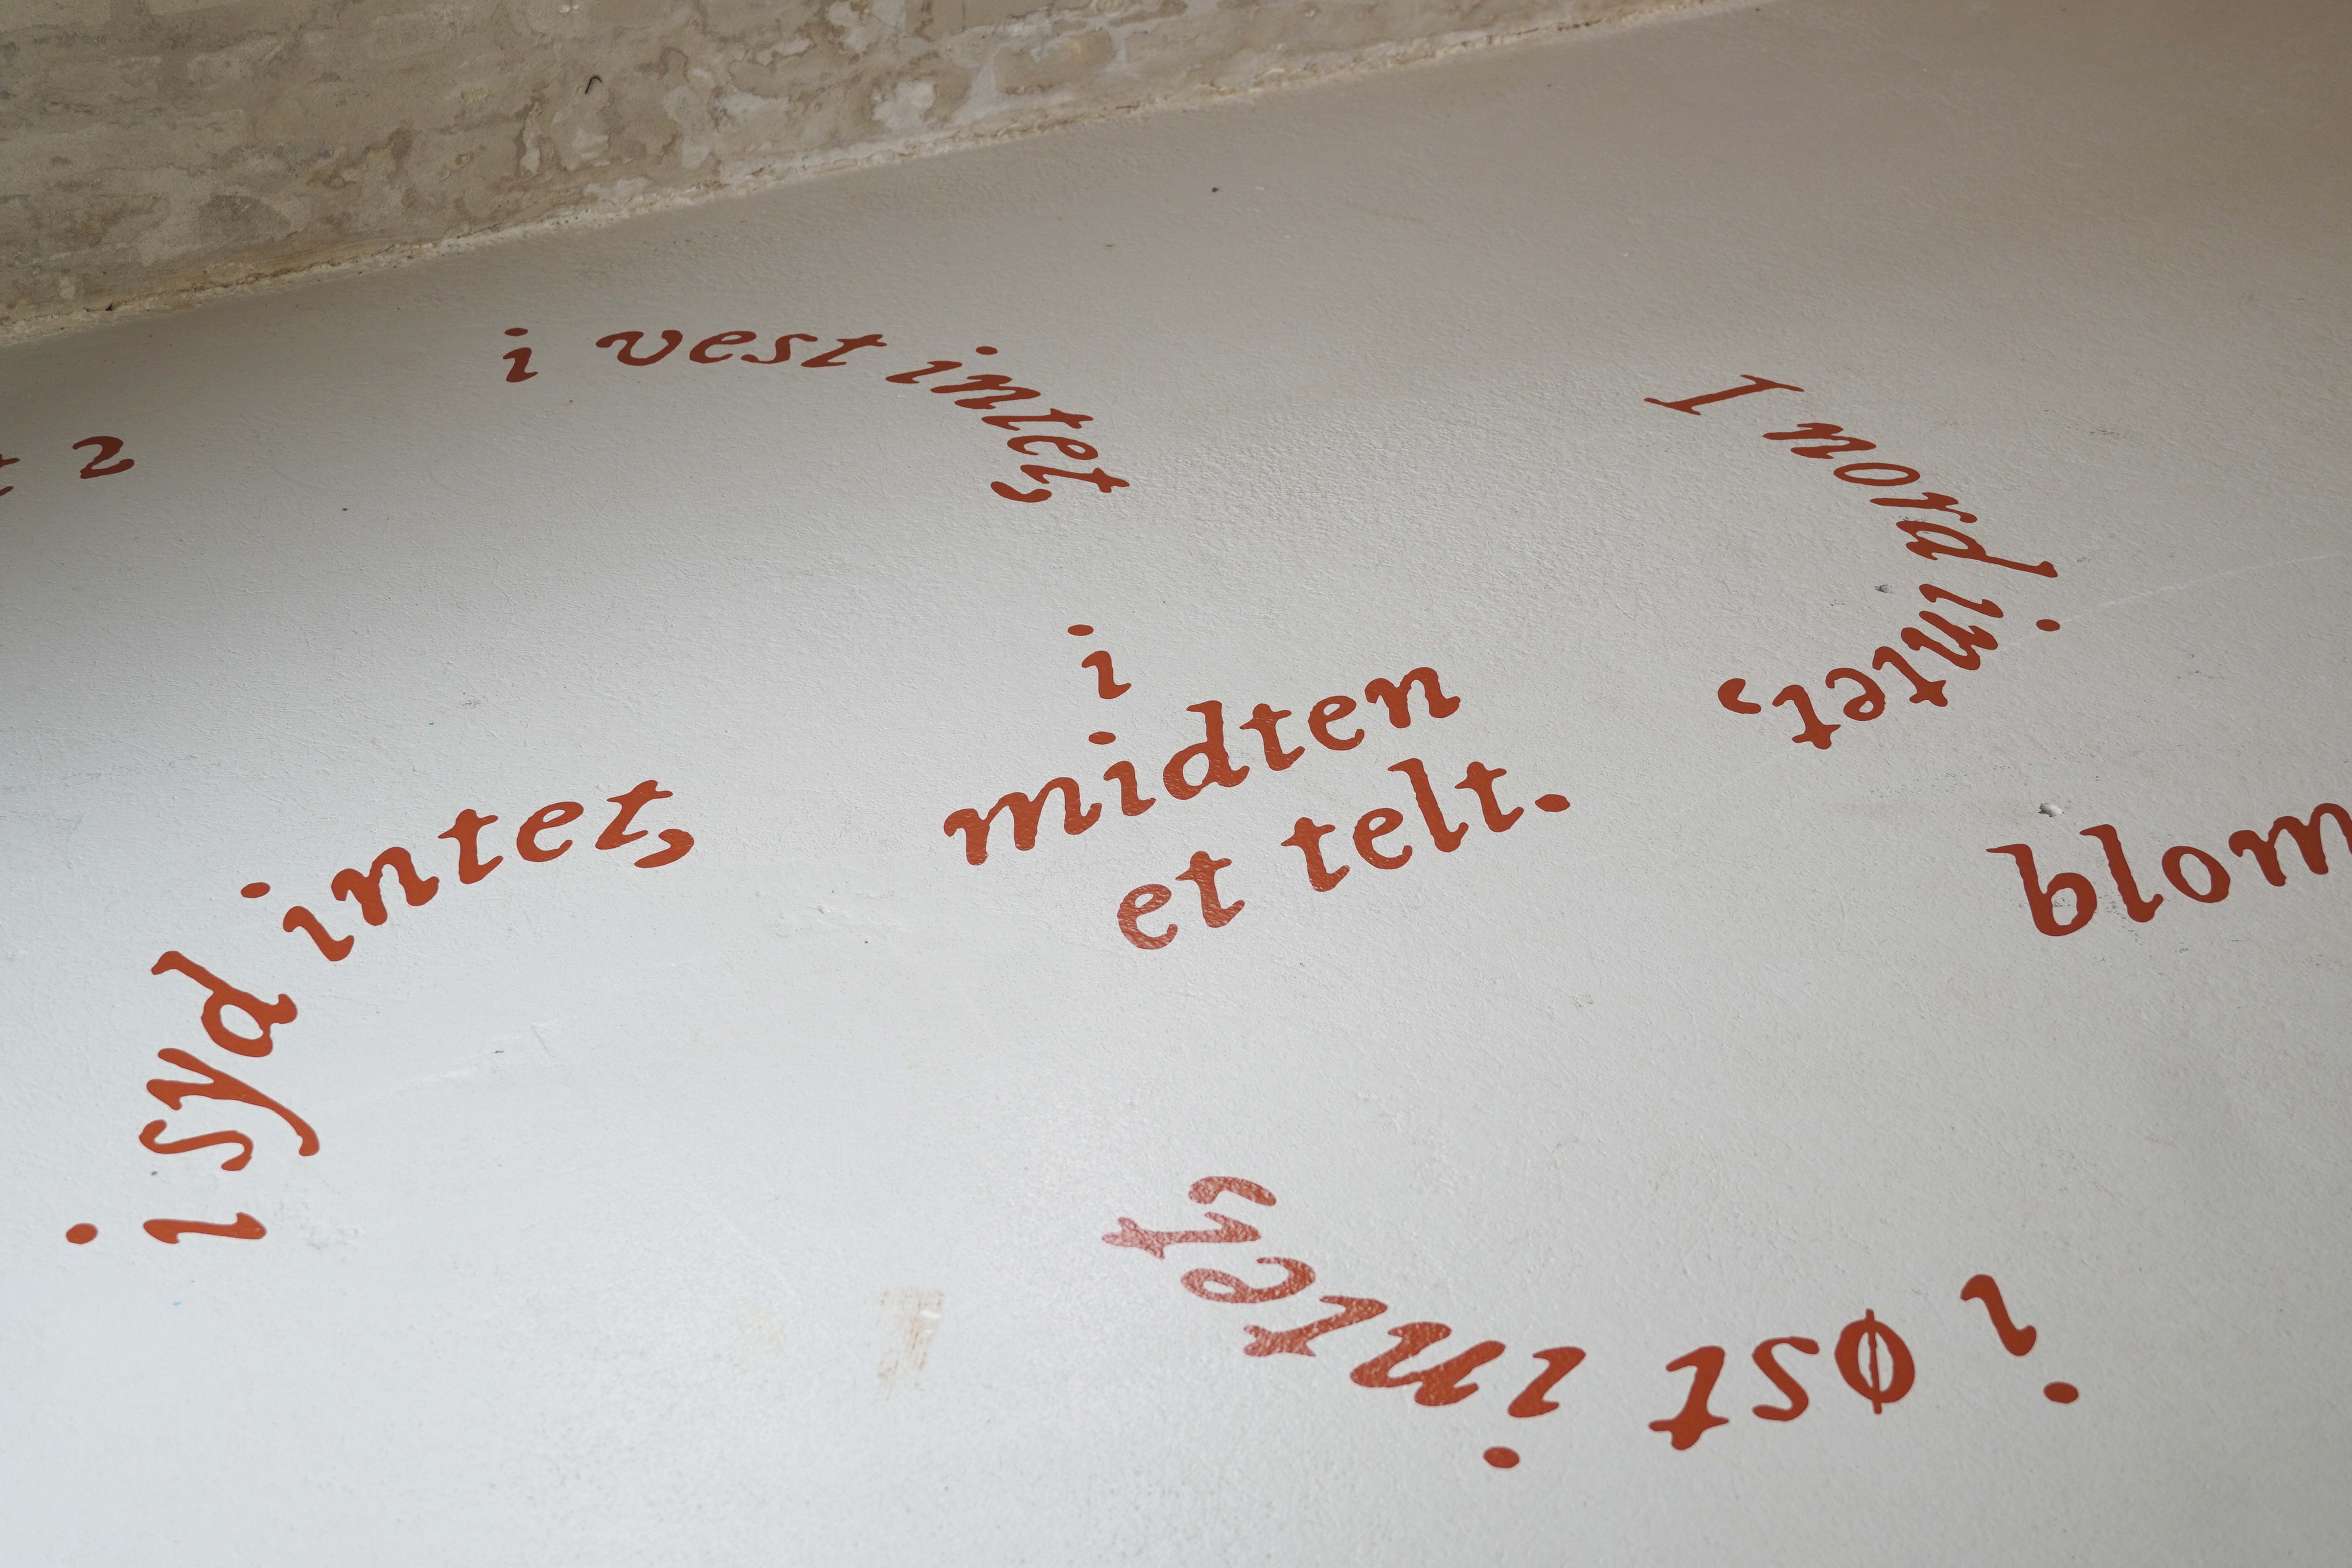 I nord intet,
i øst intet,
i syd intet,
i vest intet,
i
midten
et telt.
blom
2